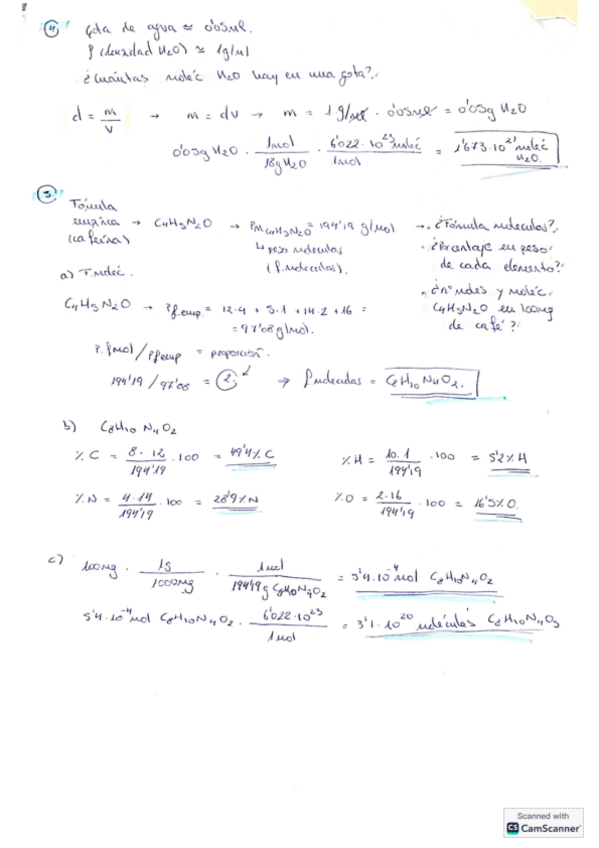 ④ Gota de agua ≃ 0'05 ml.
ρ (densidad H2O) ≃ 1g/ml
¿Cuántas moléc H2O hay en una gota?
d = m/v → m = dv → m = 1 g/ml · 0'05ml = 0'05g H2O
0'05g H2O · 1mol/18g H2O · 6'022·10^23 moléc/1mol = 1'673·10^21 moléc H2O.
⑤ Fórmula empírica (cafeína) → C4H5N2O → PM C4H5N2O = 194'19 g/mol → ¿Fórmula molecular?
↳ peso molecular (f. molecular).
· ¿Porcentaje en peso de cada elemento?
· ¿nº moles y moléc. C4H5N2O en 100mg de café?
a) F. moléc.
C4H5N2O → Pf.emp. = 12·4 + 5·1 + 14·2 + 16 =
= 97'08 g/mol.
P. fmol/Pfemp = proporción.
194'19 / 97'08 = ② → fmolecular = C8H10N4O2.
b) C8H10N4O2
% C = 8·12/194'19 · 100 = 49'4% C
% H = 10·1/194'19 · 100 = 5'2% H
% N = 4·14/194'19 · 100 = 28'9% N
% O = 2·16/194'19 · 100 = 16'5% O.
c) 100mg · 1g/1000mg · 1mol/194'19 g C8H10N4O2 = 5'4·10^-4 mol C8H10N4O2
5'4·10^-4 mol C8H10N4O2 · 6'022·10^23/1mol = 3'1·10^20 moléculas C8H10N4O2
Scanned with
CS CamScanner